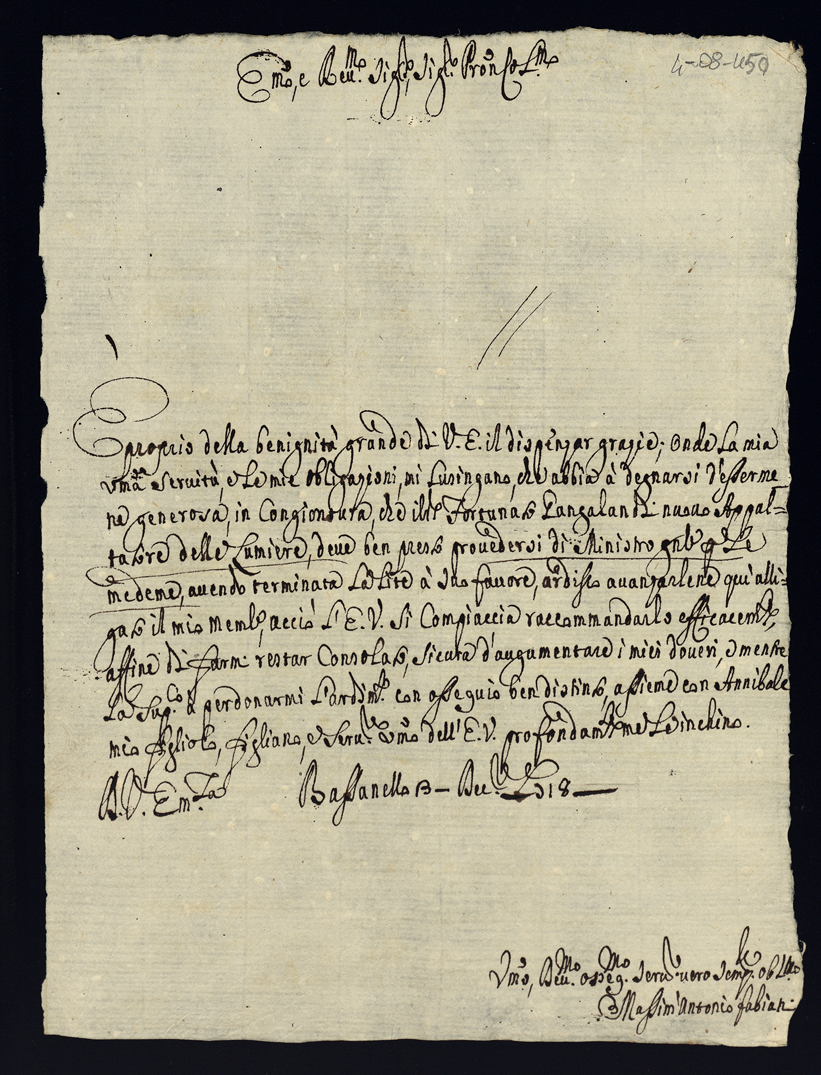 Em̃o, e Reu.mo Sig.re, Sig.re Pron Col.mo
4-08-450
È proprio della benignità grande di V. E. il dispenzar grazie; onde la mia
vm̃a seruitù, e le mie obligazioni, mi lusingano, che abbia à degnarsi d'esserme
ne generosa, in congiontura, che il Fortunato Pangalandi nuouo Appal=
tatore delle Lumiere, deue ben presto prouedersi di Ministro le
medeme, auendo terminata la lite à suo fauore, ardisco auanzarlene qui alli=
gato il mio mem.le, acciò l'E. V. si compiaccia raccommandarlo efficacem.te,
affine di farmi restar consolato, sicura d'augumentare i miei doueri, e mentre
la sup.co à perdonarmi l'ardim.to con osseguio ben distinto, assieme con Annibale
mio figliolo, figliano, e seru.re vm̃o dell'E. V. profondam.te me le inchino.
D. V. Em.za Bassanello 13 Dec. 1718
Vm̃o, Deu.mo osseg.mo seru.re uero semp.re obl.mo
Massim'Antonio fabiani